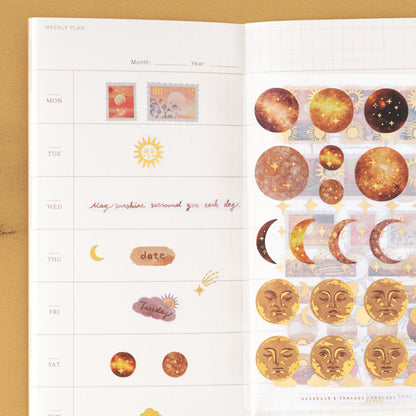 WEEKLY PLAN
Month: Year:
MON
80
TUE
WED
May sunshine surround you each day.
THU
date
FRI
Tuesday!
SAT